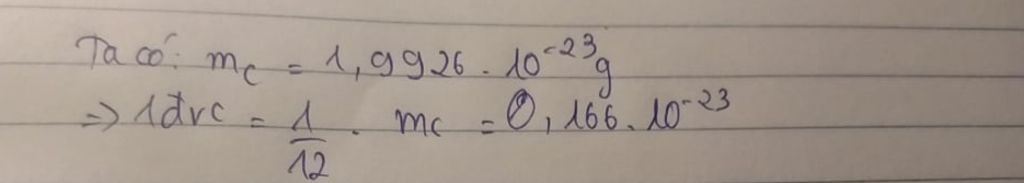 Ta có: m_C = 1,9926 . 10^-23 g
=> 1đvc = 1/12 . m_C = 0,166 . 10^-23